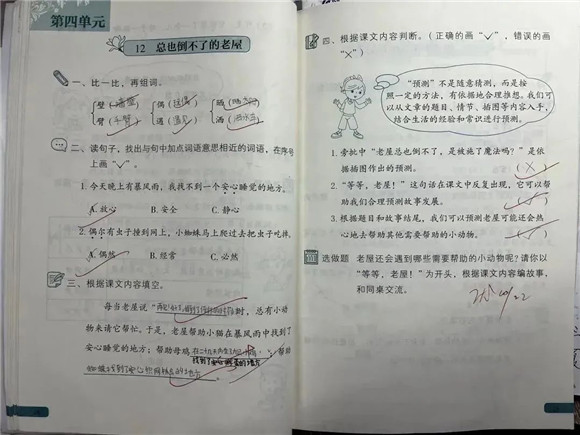 第四单元
12 总也倒不了的老屋
一、比一比，再组词。
壁（墙壁） 偶（ ） 晒（ ）
臂（手臂） 遇（遇见） 洒（洒水）
二、读句子，找出与句中加点词语意思相近的词语，在序号
上画“√”。
1. 今天晚上有暴风雨，我找不到一个安心睡觉的地方。
A. 放心 B. 安全 C. 静心
2. 偶尔有虫子撞到网上，小蜘蛛马上爬过去把虫子吃掉。
A. 偶然 B. 经常 C. 必然
三、根据课文内容填空。
每当老屋说“ ”时，总有小动
物来请它帮忙。于是，老屋帮助小猫在暴风雨中找到了
安心睡觉的地方；帮助母鸡 ；帮助
找到了安心 的地方
找到了安心 的地方。
四、根据课文内容判断。（正确的画“√”，错误的画
“×”）
“预测”不是随意猜测，而是按
照一定的方法，有依据地合理推想。我们可
以从文章的题目、情节、插图等内容入手，
结合生活的经验和常识进行预测。
1. 旁批中“老屋总也倒不了，是被施了魔法吗？”是依
据插图作出的预测。（×）
2. “等等，老屋！”这句话在课文中反复出现，它可以帮
助我们合理预测故事发展。（√）
3. 根据题目和故事结尾，我们可以预测老屋可能还会热
心地去帮助其他需要帮助的小动物。（√）
选做题 老屋还会遇到哪些需要帮助的小动物呢？请你以
“等等，老屋！”为开头，根据课文内容编故事，
和同桌交流。